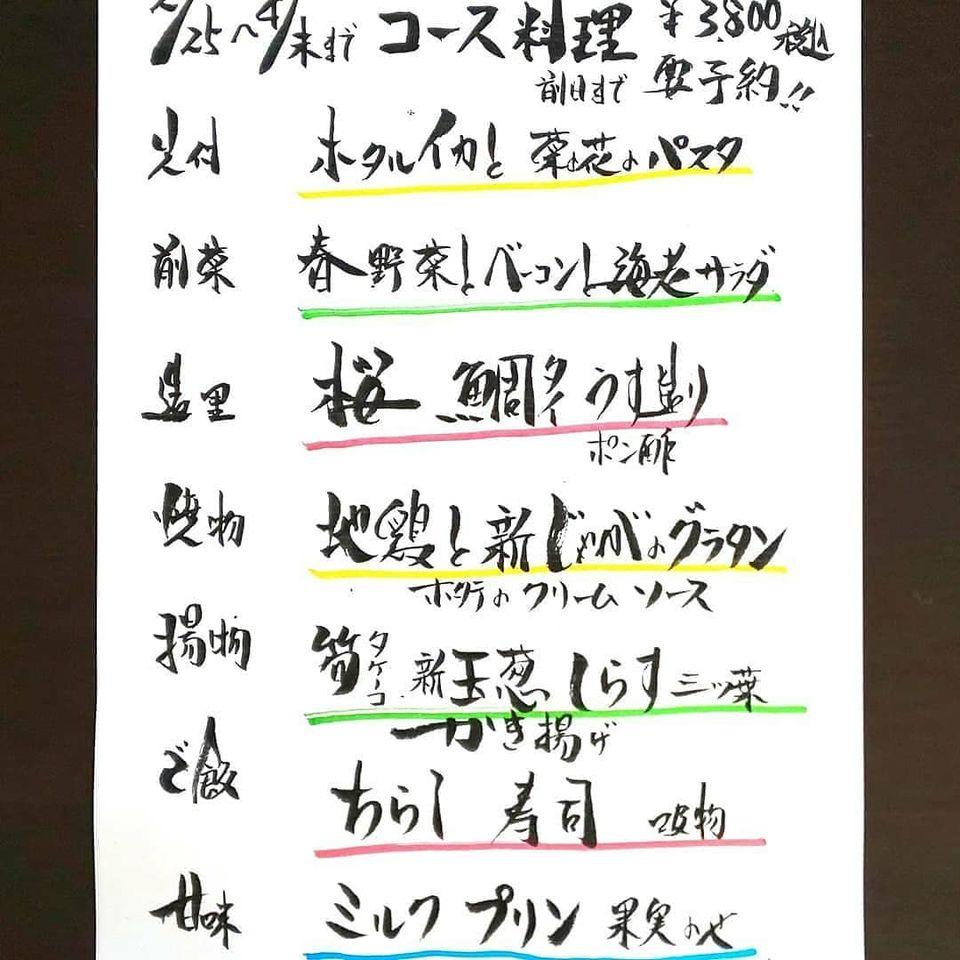 /25〜4/末まで コース料理 ¥3,800税込
前日まで 要予約!!
先付 ホタルイカと菜の花のパスタ
前菜 春野菜とベーコンと海老サラダ
造里 桜鯛タイうす造り
ポン酢
焼物 地鶏と新じゃがのグラタン
ホタテのクリームソース
揚物 筍タケノコ 新玉葱 しらす 三ツ葉
かき揚げ
ご飯 ちらし寿司 吸物
甘味 ミルクプリン 果実のせ